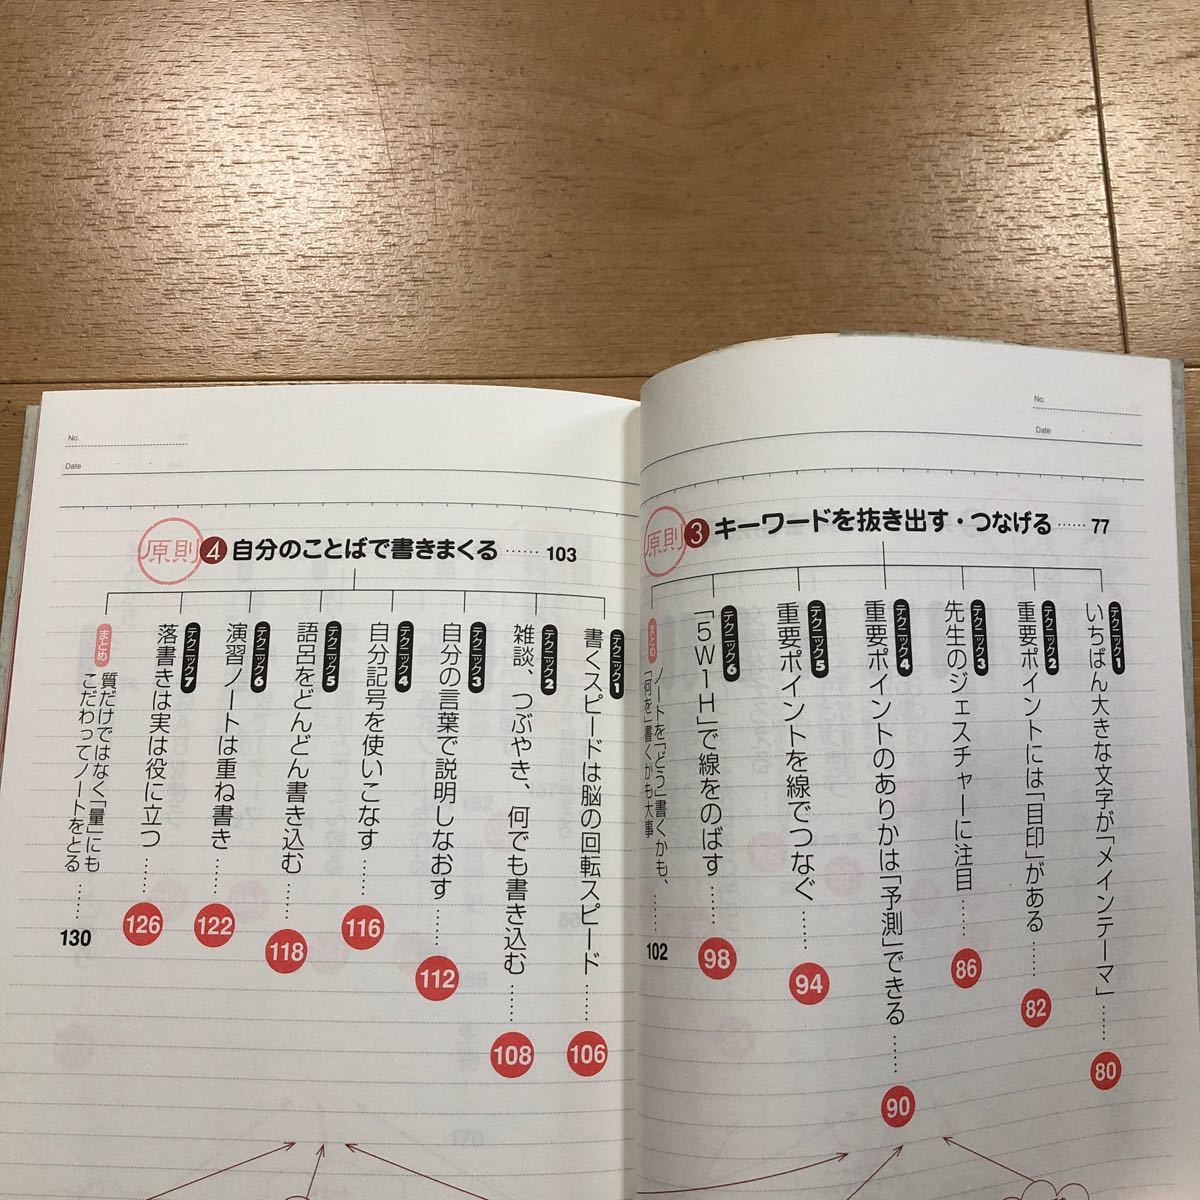 No.
Date
原則 3 キーワードを抜き出す・つなげる …… 77
テクニック1
いちばん大きな文字が「メインテーマ」…… 80
テクニック2
重要ポイントには「目印」がある …… 82
テクニック3
先生のジェスチャーに注目 …… 86
テクニック4
重要ポイントのありかは「予測」できる …… 90
テクニック5
重要ポイントを線でつなぐ …… 94
テクニック6
「5W1H」で線をのばす …… 98
まとめ
ノートを「どう」書くかも、
「何を」書くかも大事 …… 102
No.
Date
原則 4 自分のことばで書きまくる …… 103
テクニック1
書くスピードは脳の回転スピード …… 106
テクニック2
雑談、つぶやき、何でも書き込む …… 108
テクニック3
自分の言葉で説明しなおす …… 112
テクニック4
自分記号を使いこなす …… 116
テクニック5
語呂をどんどん書き込む …… 118
テクニック6
演習ノートは重ね書き …… 122
テクニック7
落書きは実は役に立つ …… 126
まとめ
質だけではなく「量」にも
こだわってノートをとる …… 130